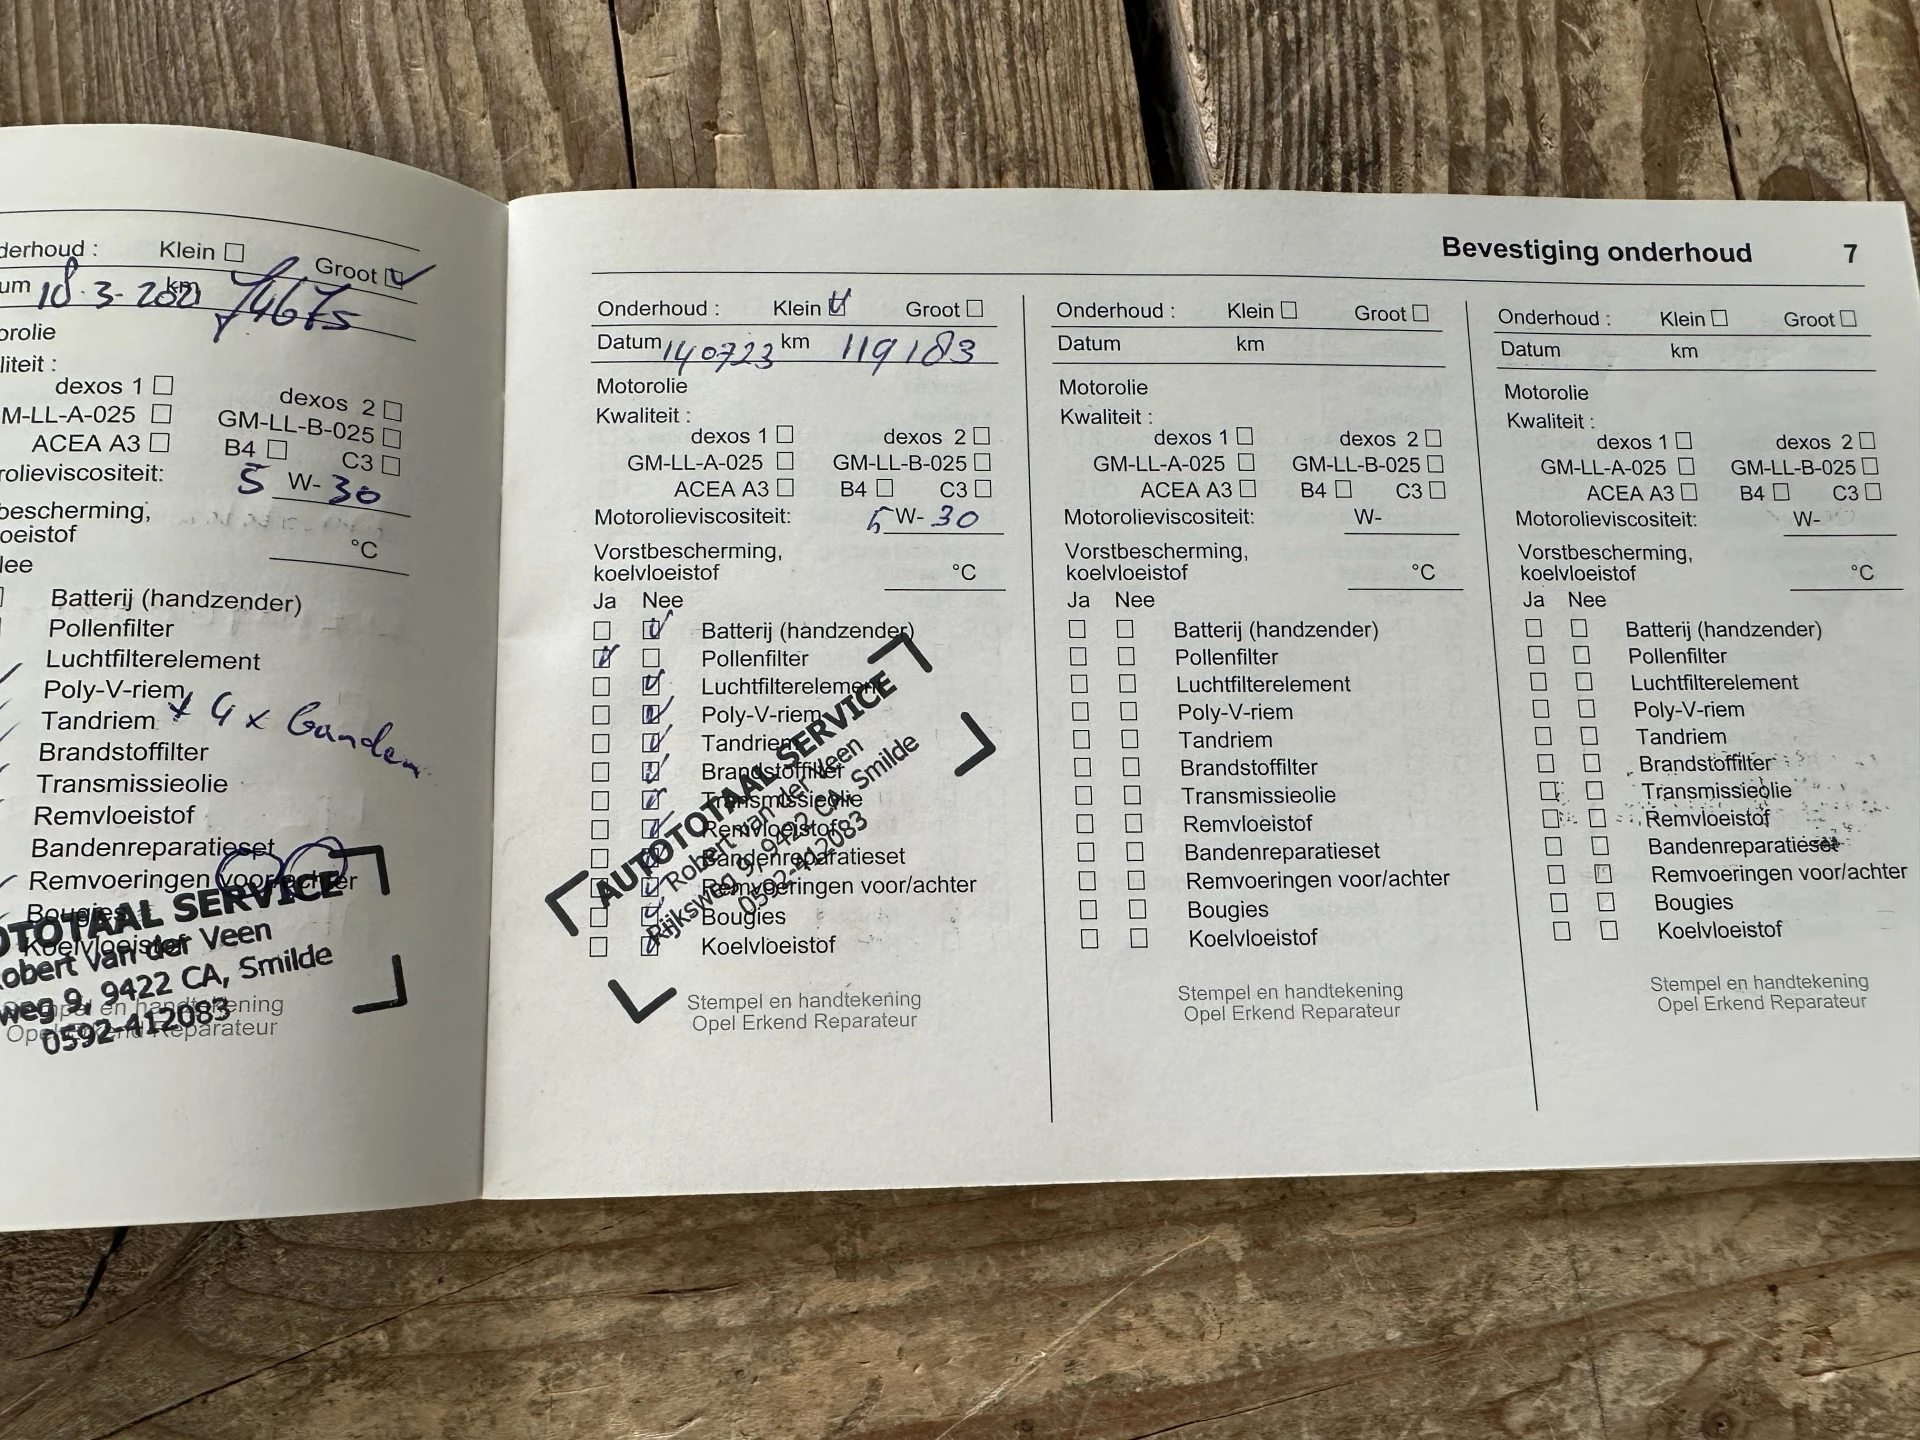 derhoud : Klein Groot
um 18-3-2021 km 74675
orolie
liteit :
dexos 1 dexos 2
M-LL-A-025 GM-LL-B-025
ACEA A3 B4 C3
rolieviscositeit: 5 W- 30
bescherming,
oeistof °C
lee
Batterij (handzender)
Pollenfilter
Luchtfilterelement
Poly-V-riem
Tandriem + 4 x banden
Brandstoffilter
Transmissieolie
Remvloeistof
Bandenreparatieset
Remvoeringen voor/achter
Bougies
Koelvloeistof
OTOTAAL SERVICE
obert van der Veen
weg 9, 9422 CA, Smilde
0592-412083
Stempel en handtekening
Opel Erkend Reparateur
Bevestiging onderhoud 7
Onderhoud : Klein Groot
Datum 140723 km 119183
Motorolie
Kwaliteit :
dexos 1 dexos 2
GM-LL-A-025 GM-LL-B-025
ACEA A3 B4 C3
Motorolieviscositeit: 5 W- 30
Vorstbescherming,
koelvloeistof °C
Ja Nee
Batterij (handzender)
Pollenfilter
Luchtfilterelement
Poly-V-riem
Tandriem
Brandstoffilter
Transmissieolie
Remvloeistof
Bandenreparatieset
Remvoeringen voor/achter
Bougies
Koelvloeistof
AUTOTOTAAL SERVICE
Robert van der Veen
Rijksweg 9, 9422 CA, Smilde
0592-412083
Stempel en handtekening
Opel Erkend Reparateur
Onderhoud : Klein Groot
Datum km
Motorolie
Kwaliteit :
dexos 1 dexos 2
GM-LL-A-025 GM-LL-B-025
ACEA A3 B4 C3
Motorolieviscositeit: W-
Vorstbescherming,
koelvloeistof °C
Ja Nee
Batterij (handzender)
Pollenfilter
Luchtfilterelement
Poly-V-riem
Tandriem
Brandstoffilter
Transmissieolie
Remvloeistof
Bandenreparatieset
Remvoeringen voor/achter
Bougies
Koelvloeistof
Stempel en handtekening
Opel Erkend Reparateur
Onderhoud : Klein Groot
Datum km
Motorolie
Kwaliteit :
dexos 1 dexos 2
GM-LL-A-025 GM-LL-B-025
ACEA A3 B4 C3
Motorolieviscositeit: W-
Vorstbescherming,
koelvloeistof °C
Ja Nee
Batterij (handzender)
Pollenfilter
Luchtfilterelement
Poly-V-riem
Tandriem
Brandstoffilter
Transmissieolie
Remvloeistof
Bandenreparatieset
Remvoeringen voor/achter
Bougies
Koelvloeistof
Stempel en handtekening
Opel Erkend Reparateur